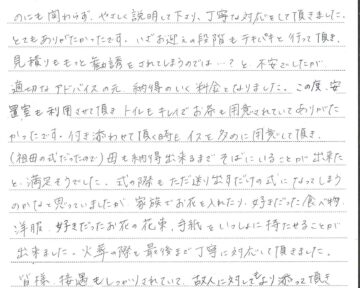 のにも関わらず、やさしく説明して下さり、丁寧な対応をして頂きました。
とてもありがたかったです。いざお迎えの段階もテキパキと行って頂き、
見積りももっと勧誘をされてしまうのでは…？と不安でしたが
適切なアドバイスの元、納得のいく料金となりました。この度、安
置室も利用させて頂きトイレもキレイでお茶も用意されていてありがた
かったです。付き添わせて頂く時もイスを多めに用意して頂き、
（祖母の式だったので）母も納得出来るまでそばにいることが出来た
と満足そうでした。式の際もただ送り出すだけの式になってしまう
のかなと思っていましたが、家族でお花を入れたり、好きだった食べ物、
洋服、好きだったお花の花束、手紙をいっしょに持たせることが
出来ました。火葬の際も最後まで丁寧に対応して頂きました。
皆様、接遇もしっかりされていて、故人に対しても寄り添って頂き